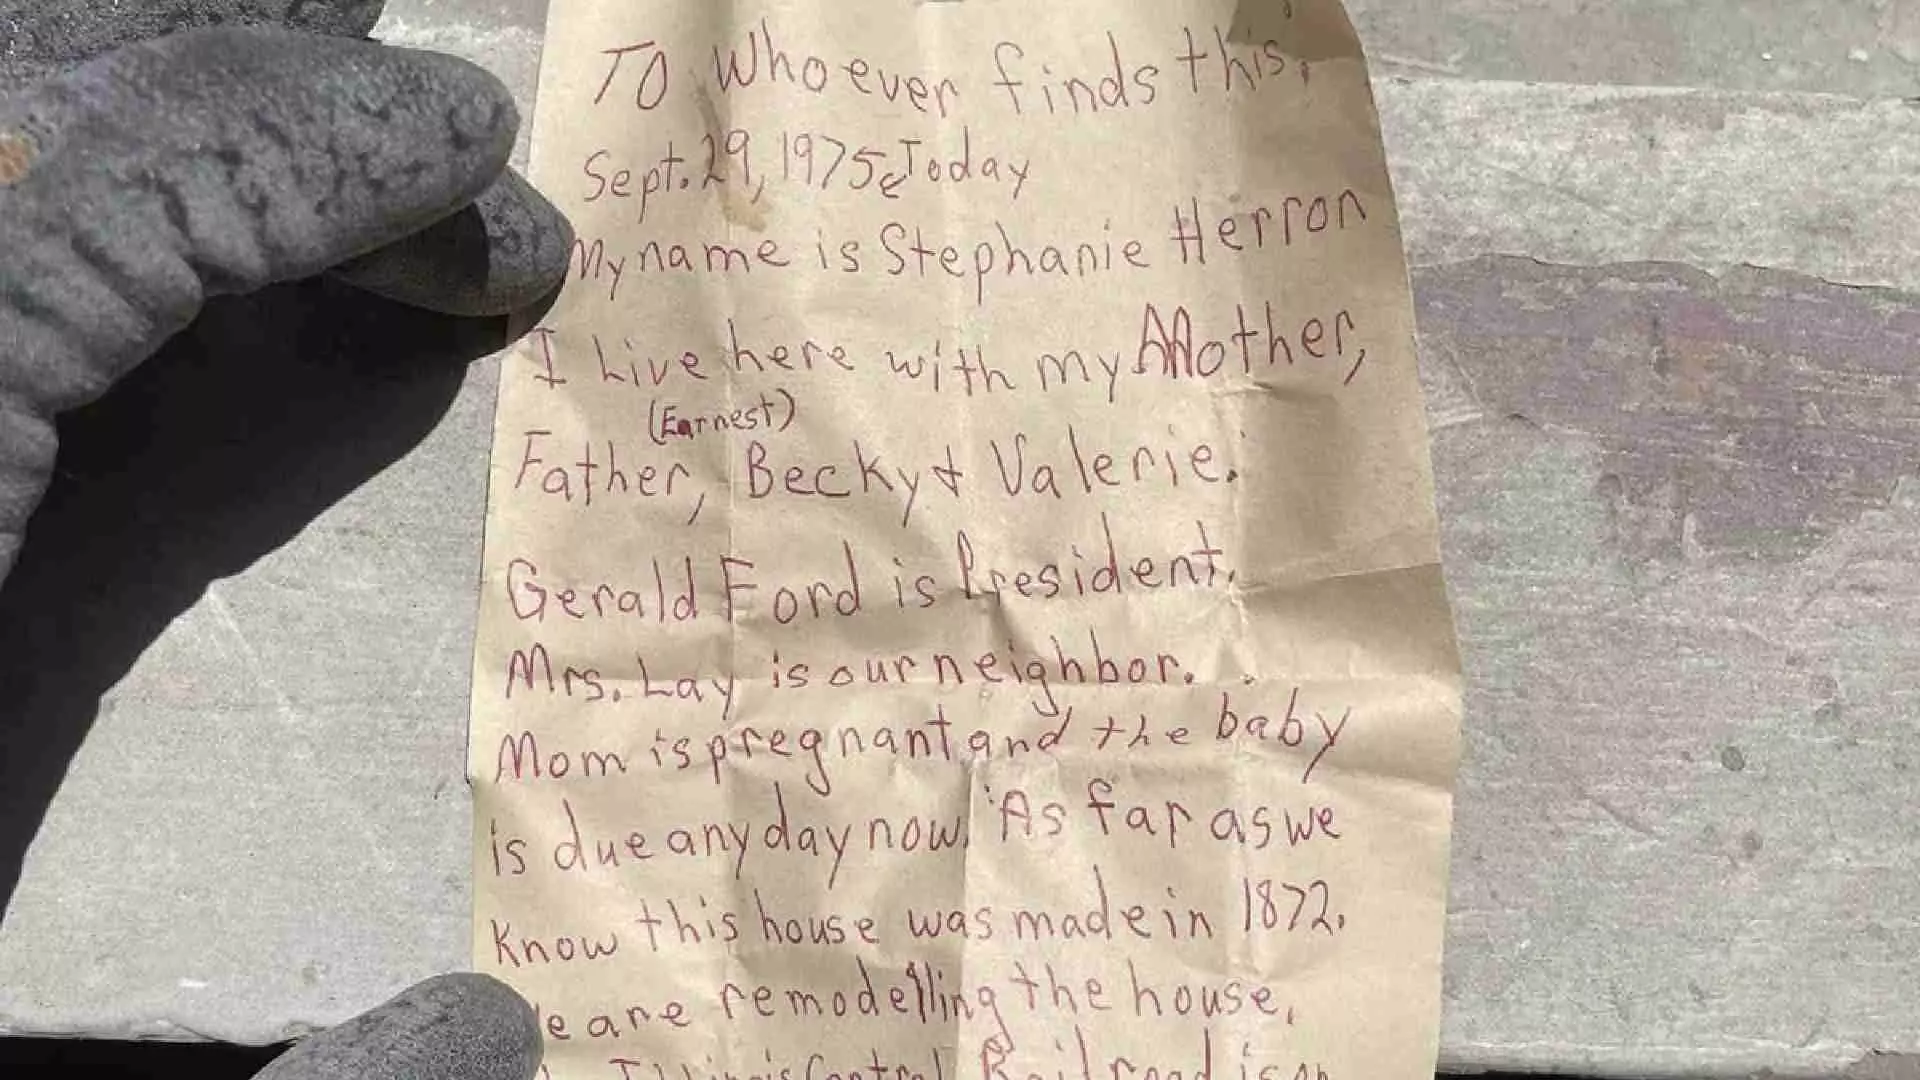 To Whoever finds this,
Sept. 29, 1975 Today
My name is Stephanie Herron
I Live here with my Mother,
(Earnest)
Father, Becky & Valerie.
Gerald Ford is President.
Mrs. Lay is our neighbor.
Mom is pregnant and the baby
is due any day now. As far as we
Know this house was made in 1872.
are remodelling the house.
Illinois Central Railroad is on